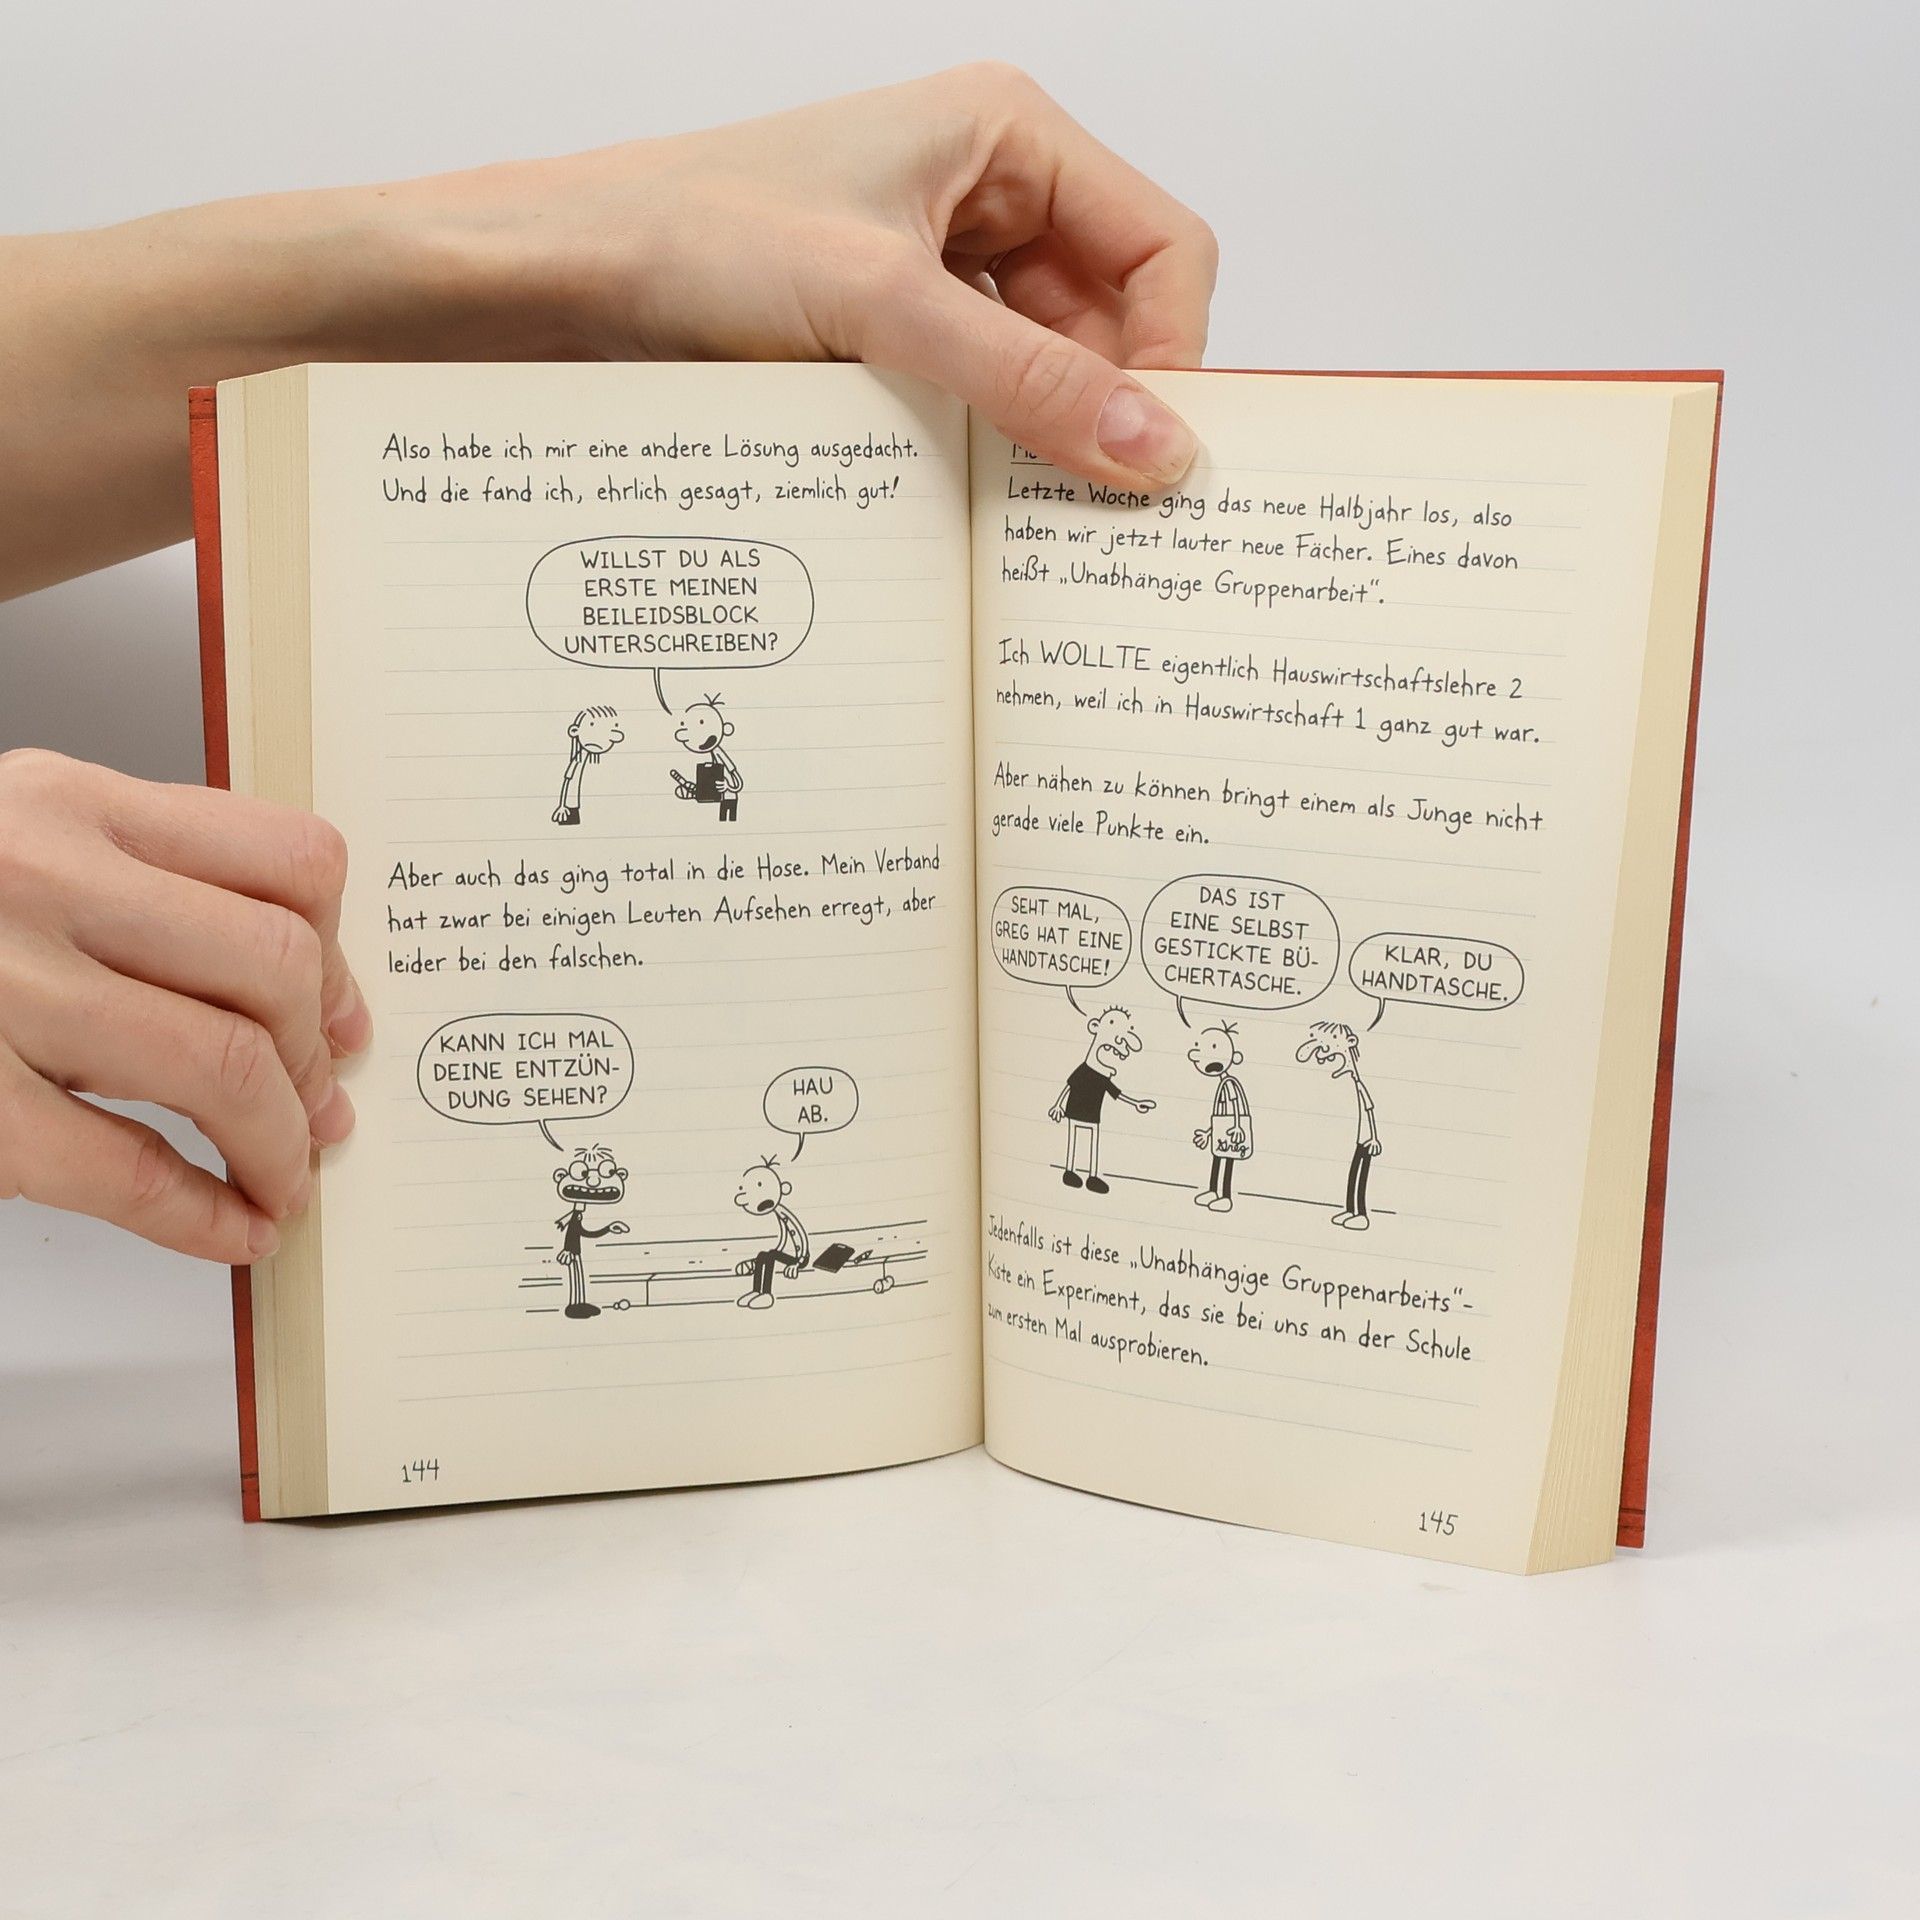 Also habe ich mir eine andere Lösung ausgedacht.
Und die fand ich, ehrlich gesagt, ziemlich gut!
WILLST DU ALS
ERSTE MEINEN
BEILEIDSBLOCK
UNTERSCHREIBEN?
Aber auch das ging total in die Hose. Mein Verband
hat zwar bei einigen Leuten Aufsehen erregt, aber
leider bei den falschen.
KANN ICH MAL
DEINE ENTZÜN-
DUNG SEHEN?
HAU
AB.
144
Letzte Woche ging das neue Halbjahr los, also
haben wir jetzt lauter neue Fächer. Eines davon
heißt „Unabhängige Gruppenarbeit“.
Ich WOLLTE eigentlich Hauswirtschaftslehre 2
nehmen, weil ich in Hauswirtschaft 1 ganz gut war.
Aber nähen zu können bringt einem als Junge nicht
gerade viele Punkte ein.
SEHT MAL,
GREG HAT EINE
HANDTASCHE!
DAS IST
EINE SELBST
GESTICKTE BÜ-
CHERTASCHE.
KLAR, DU
HANDTASCHE.
Greg
Jedenfalls ist diese „Unabhängige Gruppenarbeits“-
Kiste ein Experiment, das sie bei uns an der Schule
zum ersten Mal ausprobieren.
145